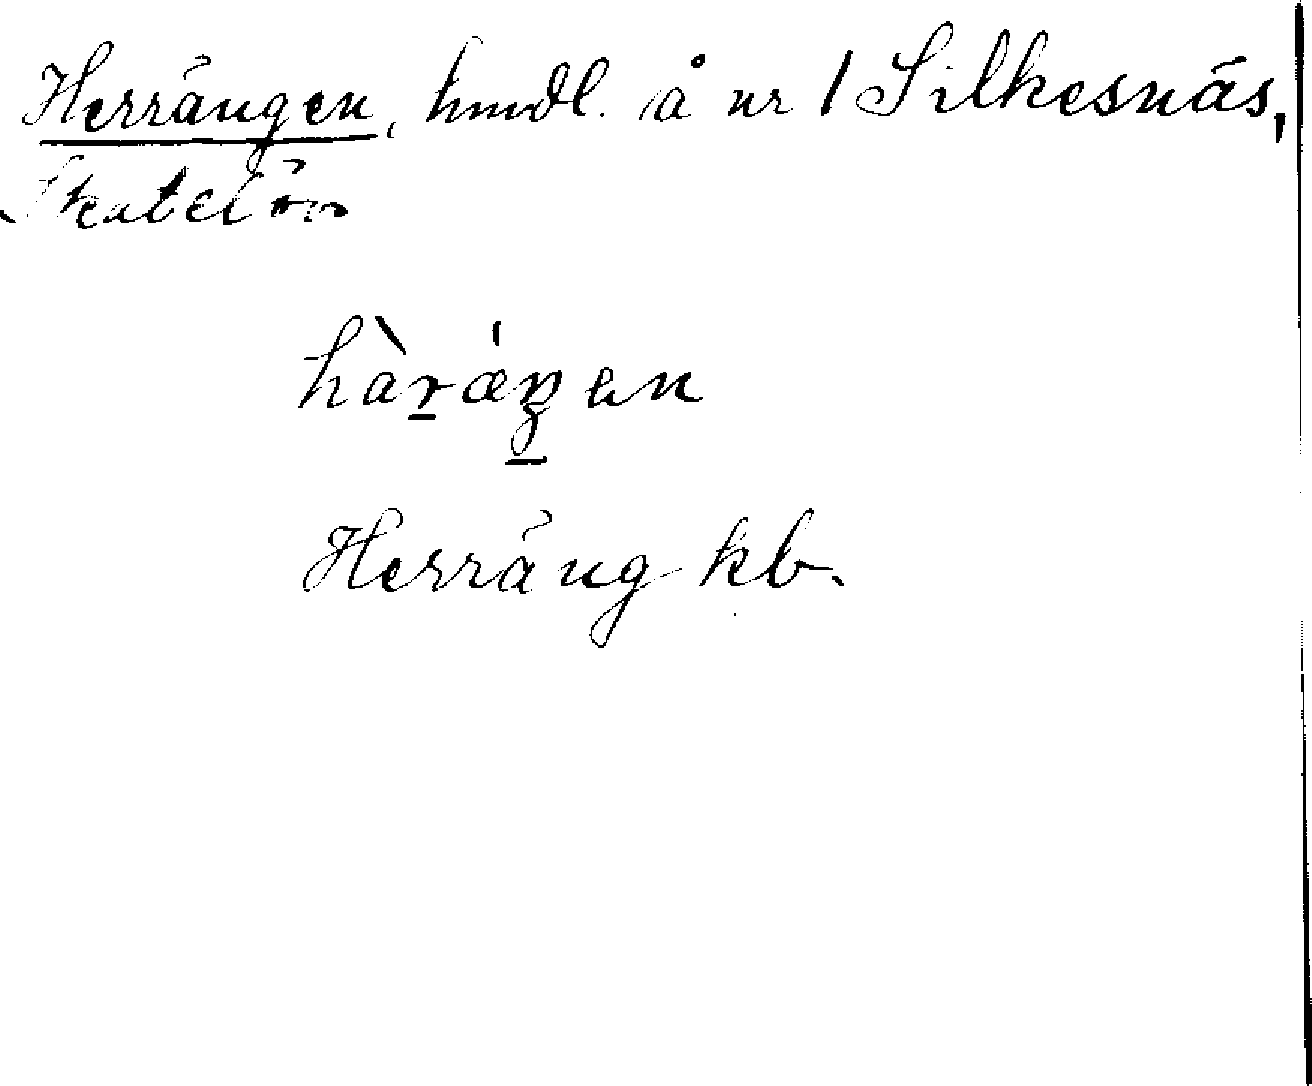 Herrängen, hmdl. å nr 1 Silkesnäs,
Skatelöv
hàrǽŋen
Herräng kb.